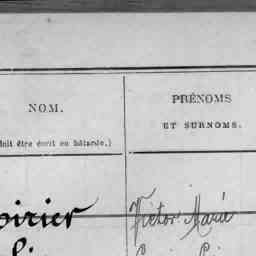 NOM.
PRÉNOMS
ET SURNOMS.
doit être écrit en bâtarde.)
oirier
Victor Marie